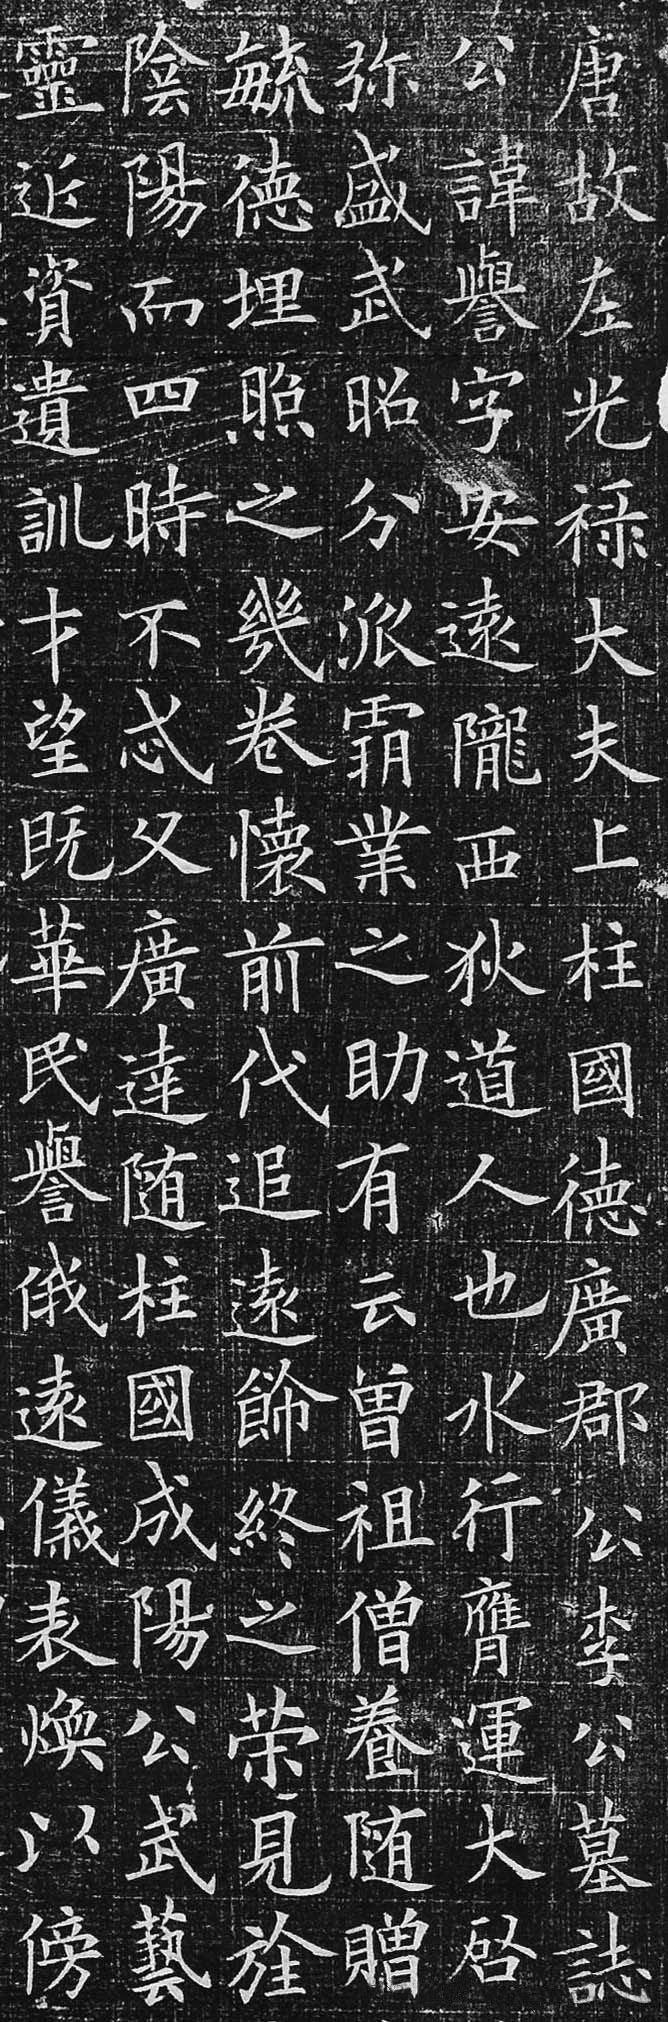 唐故左光禄大夫上柱國德廣郡公李公墓誌
公諱譽字安遠隴西狄道人也水行膺運大啓
弥盛武昭分派霸業之助有云曾祖僧養随贈
毓德埋照之幾卷懐前代追遠飾終之荣見旌
陰陽而四時不忒父廣達随柱國成陽公武藝
靈近資遺訓才望既華民譽俄遠儀表煥以傍